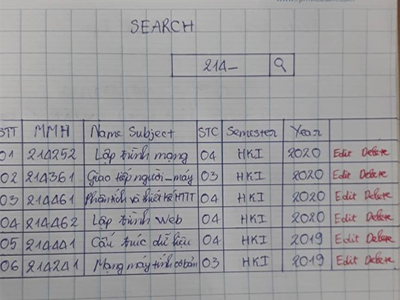 SEARCH
214_
STT MMH Name Subject STC Semester Year
01 214252 Lập trình mạng 04 HKI 2020 Edit Delete
02 214361 Giao tiếp người_máy 03 HKI 2020 Edit Delete
03 214461 Phân tích và thiết kế HTTT 04 HKI 2020 Edit Delete
04 214462 Lập trình Web 04 HKI 2020 Edit Delete
05 214441 Cấu trúc dữ liệu 04 HKI 2019 Edit Delete
06 214241 Mạng máy tính cơ bản 03 HKI 2019 Edit Delete